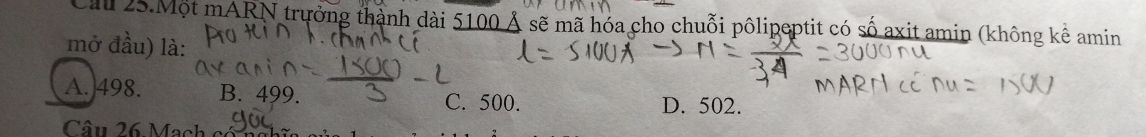 Câu 25.Một mARN trưởng thành dài 5100 Å sẽ mã hóa cho chuỗi pôlipeptit có số axit amin (không kể amin
mở đầu) là:
Protein h.chỉnh có
l = 5100Å → N = 2l/3,4 = 3000 nu
ax anin = 1500/3 - 2
mARN có nu = 1500
A. 498.
B. 499.
C. 500.
D. 502.
Câu 26.Mạch có nghĩa của